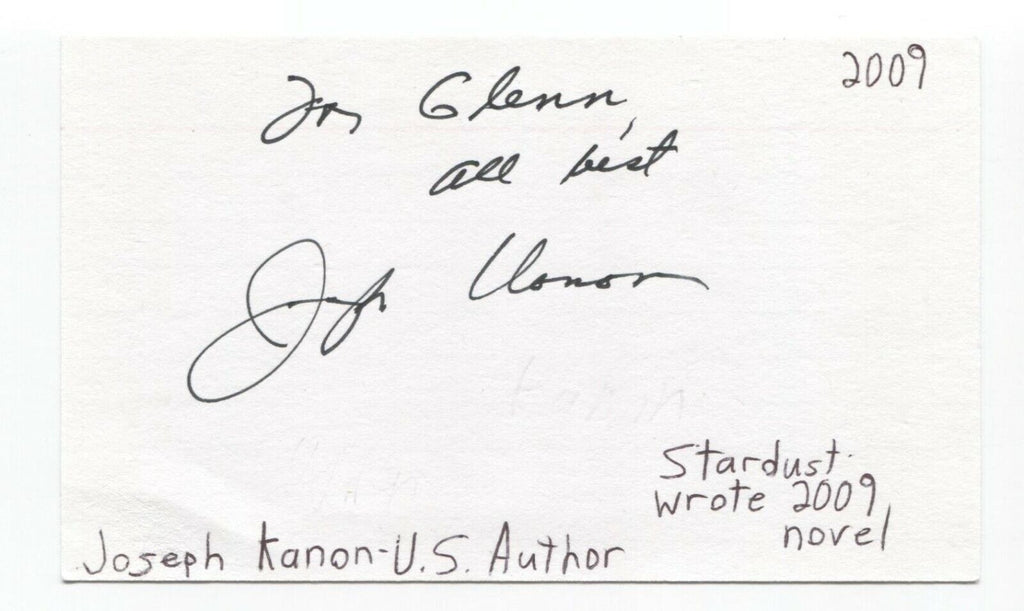 2009
For Glenn,
all best
Joseph Kanon
Stardust
wrote 2009
novel
Joseph Kanon-U.S. Author